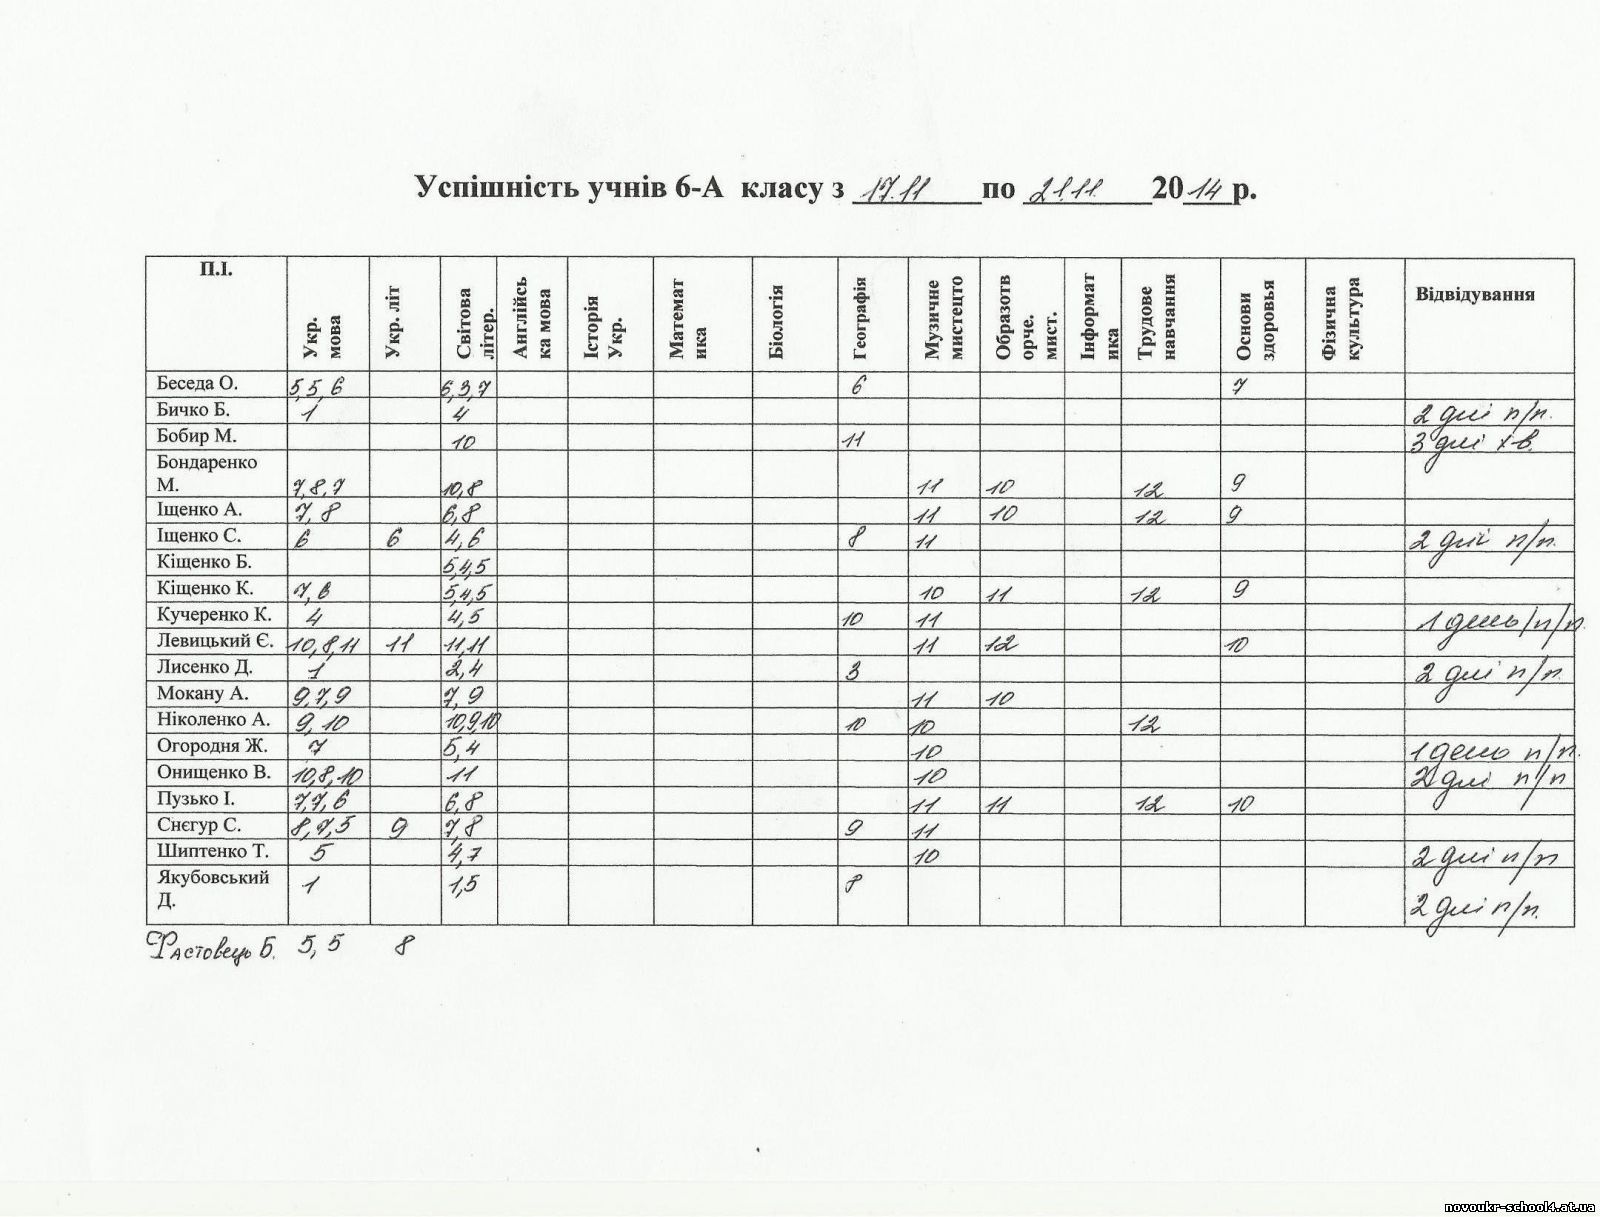 Успішність учнів 6-А класу з 17.11 по 21.11. 2014 р.
П.І. Укр. мова Укр. літ Світова літер. Англійсь ка мова Історія Укр. Математ ика Біологія Географія Музичне мистецто Образотв орче. мист. Інформат ика Трудове навчання Основи здоровья Фізична культура Відвідування
Беседа О. 5,5,6 6,3,7 6 7
Бичко Б. 1 4 2 дні п/п.
Бобир М. 10 11 3 дні х-в.
Бондаренко
М. 7,8,7 10,8 11 10 12 9
Іщенко А. 7,8 6,8 11 10 12 9
Іщенко С. 6 6 4,6 8 11 2 дні п/п.
Кіщенко Б. 5,4,5
Кіщенко К. 7,6 5,4,5 10 11 12 9
Кучеренко К. 4 4,5 10 11 1 день/п/п.
Левицький Є. 10,8,11 11 11,11 11 12 10
Лисенко Д. 1 2,4 3 2 дні п/п.
Мокану А. 9,7,9 7,9 11 10
Ніколенко А. 9,10 10,9,10 10 10 12
Огородня Ж. 7 5,4 10 1 день п/п.
Онищенко В. 10,8,10 11 10 2 дні п/п
Пузько І. 7,7,6 6,8 11 11 12 10
Снєгур С. 8,7,5 9 7,8 9 11
Шиптенко Т. 5 4,7 10 2 дні п/п
Якубовський
Д. 1 1,5 8 2 дні п/п.
Фастовець Б. 5,5 8
novoukr-school4.at.ua